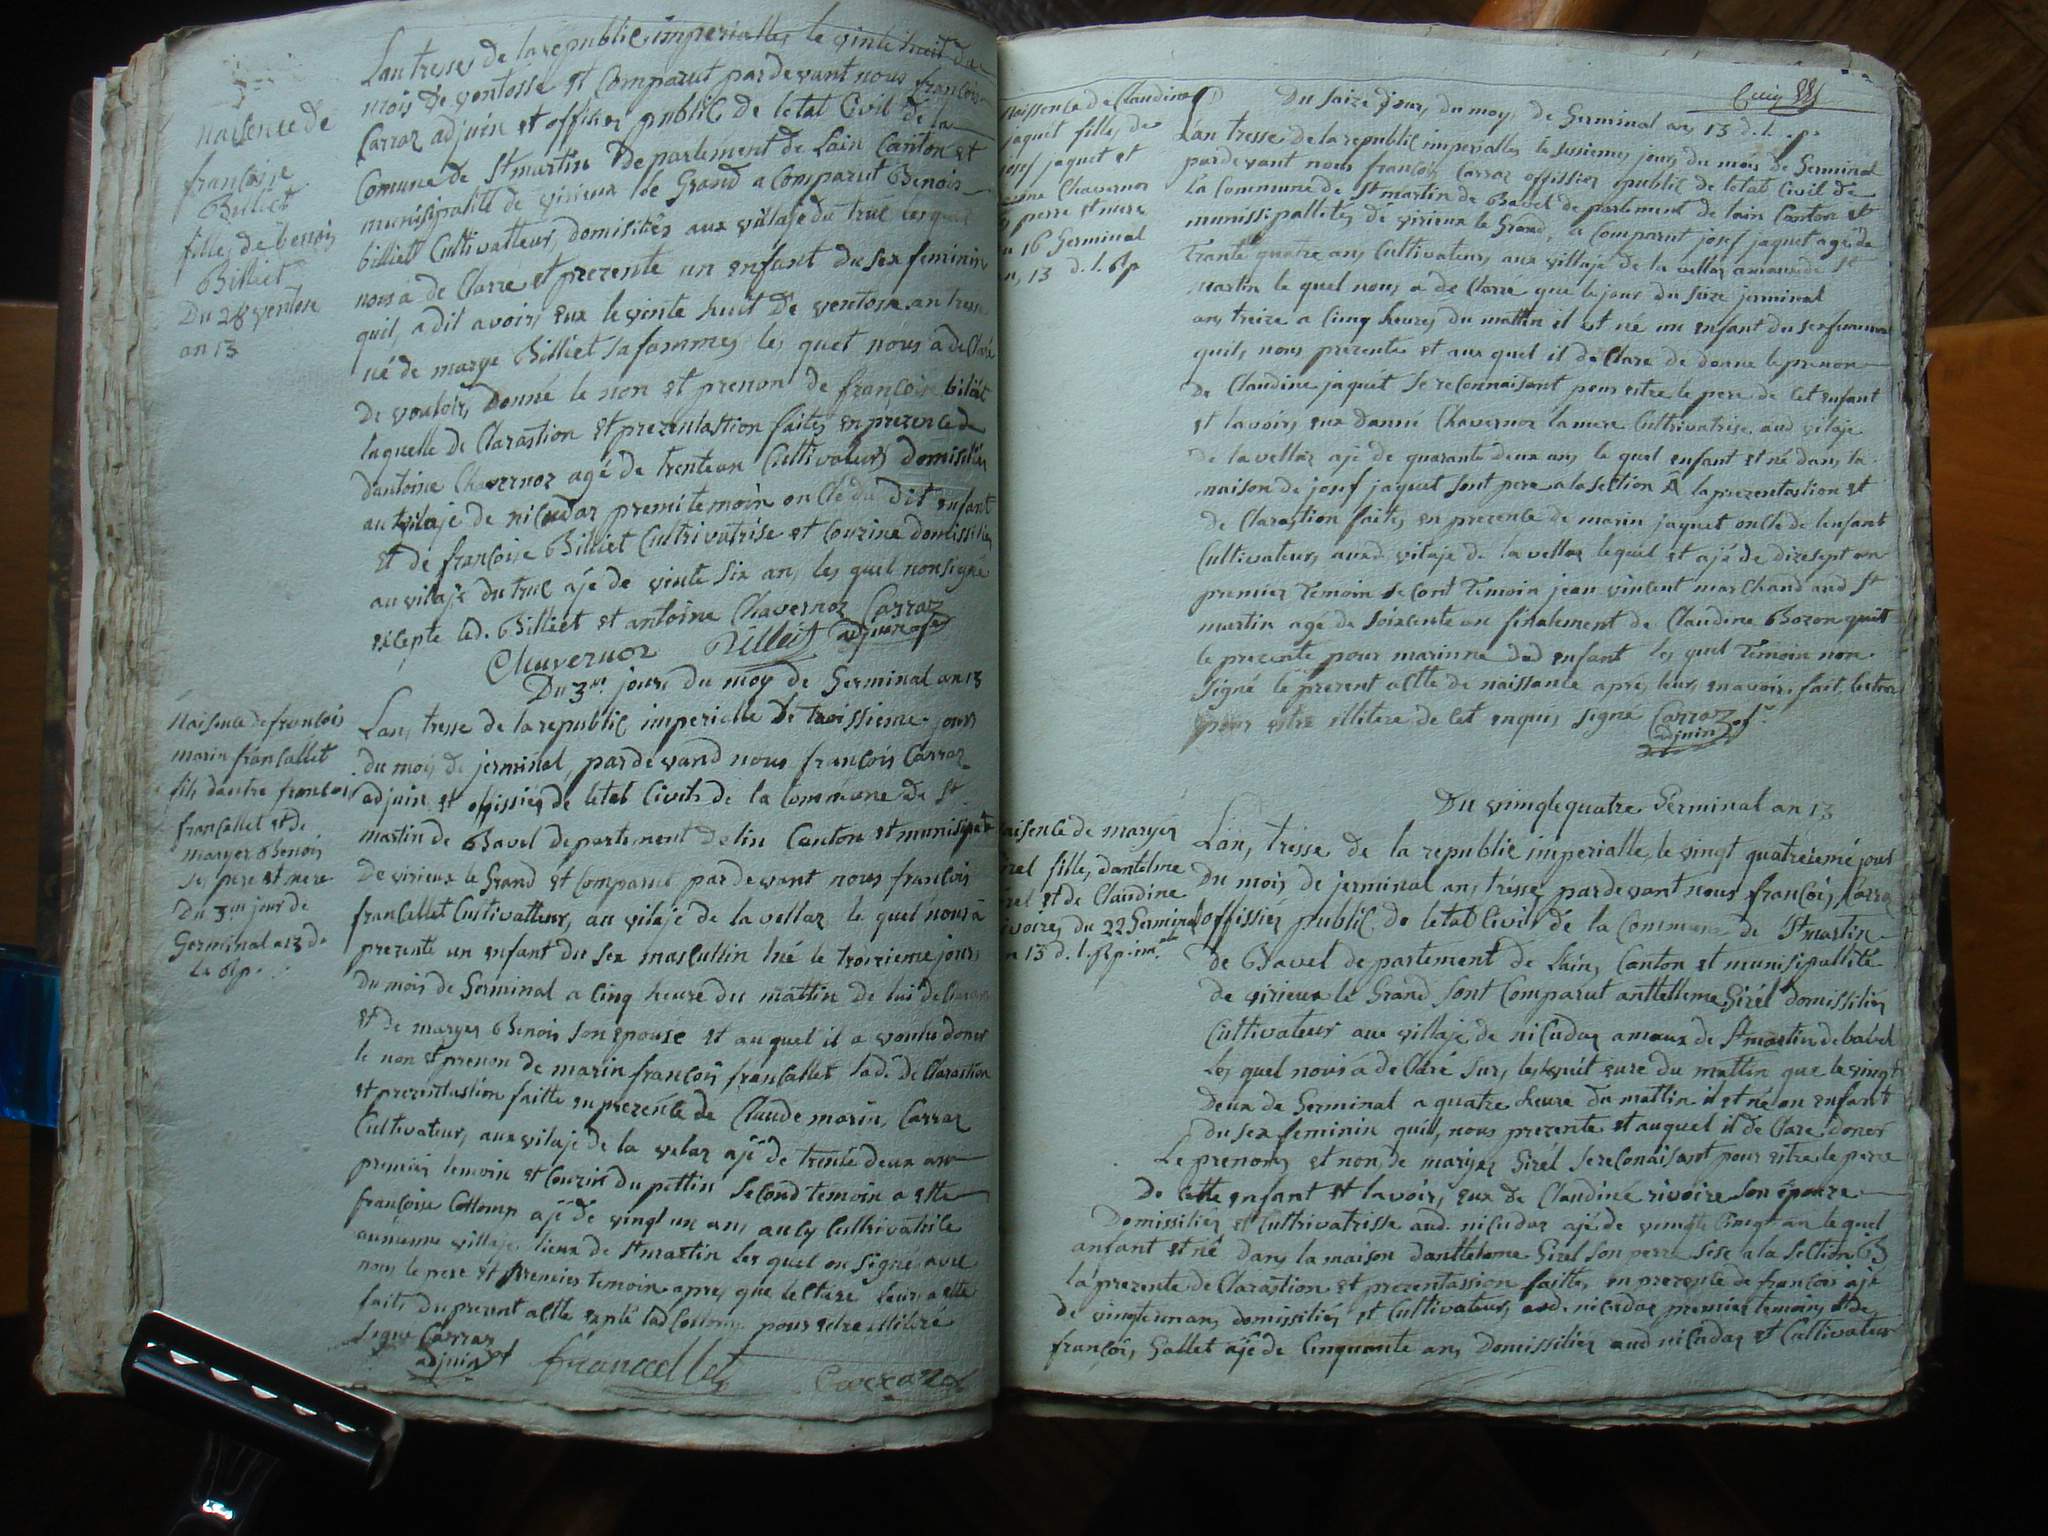 naisence de
françoise
Billiet
fille de benois
Billiet
Du 28 ventose
an 13
Lan tresse de la republic imperialle, le vinte huit du
mois de ventosse et comparut par devant nous françois
Carraz adjuin et offisier public de letat Civil de la
Comune de St martin departement de Lain Canton et
munisipalité de virieux le Grand a Comparut Benois
billiet Cultivatteur, domisiliés aux villaje du truc lequel
nous a de Clarré et prezente un enfant du sex feminin
quil, a dit avoir, eux le vinte huit de ventose an tresse
né de marye Billiet sa fammes les quel nous a de Claré
de vouloir, donné le non et prenon de françoise biliet
laquelle de Clarastion et prezentastion faites en prezence de
dantoine Chavernoz agé de trente an Cultivateur, domisilier
au vilaje de nicudaz premi temoin oncle du dit enfant
et de françoise Billiet Cultrivatrise et Couzine domissilier
au vilaje du truc aje de vinte six ans, les quel non signé
exepte led. Billiet et antoine Chavernoz Carraz
Chavernoz Billiet adjuin of
Du 3me jour, du moy de Germinal an 13
Naisence de françois
marin françallet
fils dautre françois
françallet et de
maryer Benois
ses pere et mere
Du 3me jour de
Germinal a 13 de
la Rp.
Lan, tresse de la republic imperialle de troissieme jours
du mois de jerminal, par devand nous françois Carraz
adjuin et offissier de letat Civils de la Commune de St
martin de Bavel departement de lin Canton et munisipalite
De virieux le Grand et Comparut par devant nous françois
françallet Cultivatteur, au vilaje de la vellaz le quel nous a
prezente un enfant du sex mascullin né le troizieme jours,
Du mois de Germinal a cinq heure du mattin de lui de Clarant
et de maryer Benois son epouse et au quel il a voulu doner
le non et prenon de marin françois françallet lad. de Clarastion
et prezentastion faitte en prezence de Claude marin Carraz
Cultivateur, aux vilaje de la velaz ajé de trente deux ans
premier temoin et Couzin du pettin second temoin a ette
françoise Collomp ajé de vingt un ans au Cy Cultrivatrice
au meme villaje lieux de St martin les quel on signé avec
nous le pere et premier temoin apres, que lecture leur, a ette
fait, du prezent actte exple lad Collomp pour etre illitéré
signé Carraz
adjuin of francallet Carraz
Du saize jour, du moy, de Germinal an, 13 d. l. p.
Naissence de Claudine
jaquét fille, de
josef jaquet et
Chavernoz
perre et mere
16 Germinal
13 d. l. Rp
Lan tresse de la republic imperialles le sesiemes jour, du mois de Germinal
par devant nous françois Carraz offissier public de letat Civil de
la Commune de St martin de Bavel departement de lain Canton et
munissipallites de virieux le Grand, a Comparut josef jaquet agé de
trante quatre ans, Cultivateur, aux villaje de la vellaz amaux de St
martin le quel nous a de Clarré que lejour du seize jerminal
an, treize a Cinq heures du mattin il est né un enfant du sex feminin
quil, nous prezente et aux quel il de Clare de donne le prenon
de Claudine jaquét se reconnaisant pour etre le pere de Cet enfant
et lavoir, eux danné Chavernoz la mere Cultrivatrise aud vilaje
de la vellaz ajé de quarante deux ans le quel enfant et né dans, la
maison de josef jaquet sont pere a la section A la prezentastion et
de Clarastion faites en prezence de marin jaquet oncle de lenfant
Cultivateur, aud. vilaje de la vellaz lequel et ajé de dizesept an
premier temoin second temoin jean vincent marchand aud St
martin agé de soixcente an finalement de Claudine Bozon quét
le prezente pour marinne dud enfant les quel temoin non
signé le prezent actte de naissance apré, leur, en avoir, fait lecture
pour etre illitere de Cet enquis signé Carraz of.
adjuin
Du vinngtequatre Germinal an 13
aisence de maryer
fille, dantelme
et de Claudine
rivoire, du 22 Germinal
13 d. l. Rp. im.
Lan, tresse de la republic imperialle, le vingt quatreiemé jour
Du mois de jerminal an, tresse, par devant nous françois, Carraz
offissier public de letat Civil de la Commune de St martin
de Bavel departement de Lain, Canton et munisipallité
de virieux le Grand sont Comparut anttelleme Girél domissilier
Cultivateur aux villaje de nicudaz amaux de St martin de bavel
Les quel nous a de Claré sur, les huit eure du mattin que le vingt
Deux de Germinal a quatre heure du mattin il et né un enfant
du sex feminin quil, nous prezente et auquel il de Clare doner
Le prenom, et non, de maryer Girél sereconaisant pour etre le perre
De Cette enfant et lavoir, eux de Claudine rivoire son épouze
Domissilier et Cultrivatrisse aud. nicudaz ajé de vinngte Cinq an le quel
anfant et né dans la maison danttelemme Girel son perre sise a la section B
la prezente de Clarastion et prezentassion faitte, en prezence de françois aje
de vinngte un ans, domissilier et Cultivateur, aud. nicudaz premier temoin et de
françois, Gallet ajé de Cinquante an, Domissilier aud nicudaz et Cultivateur